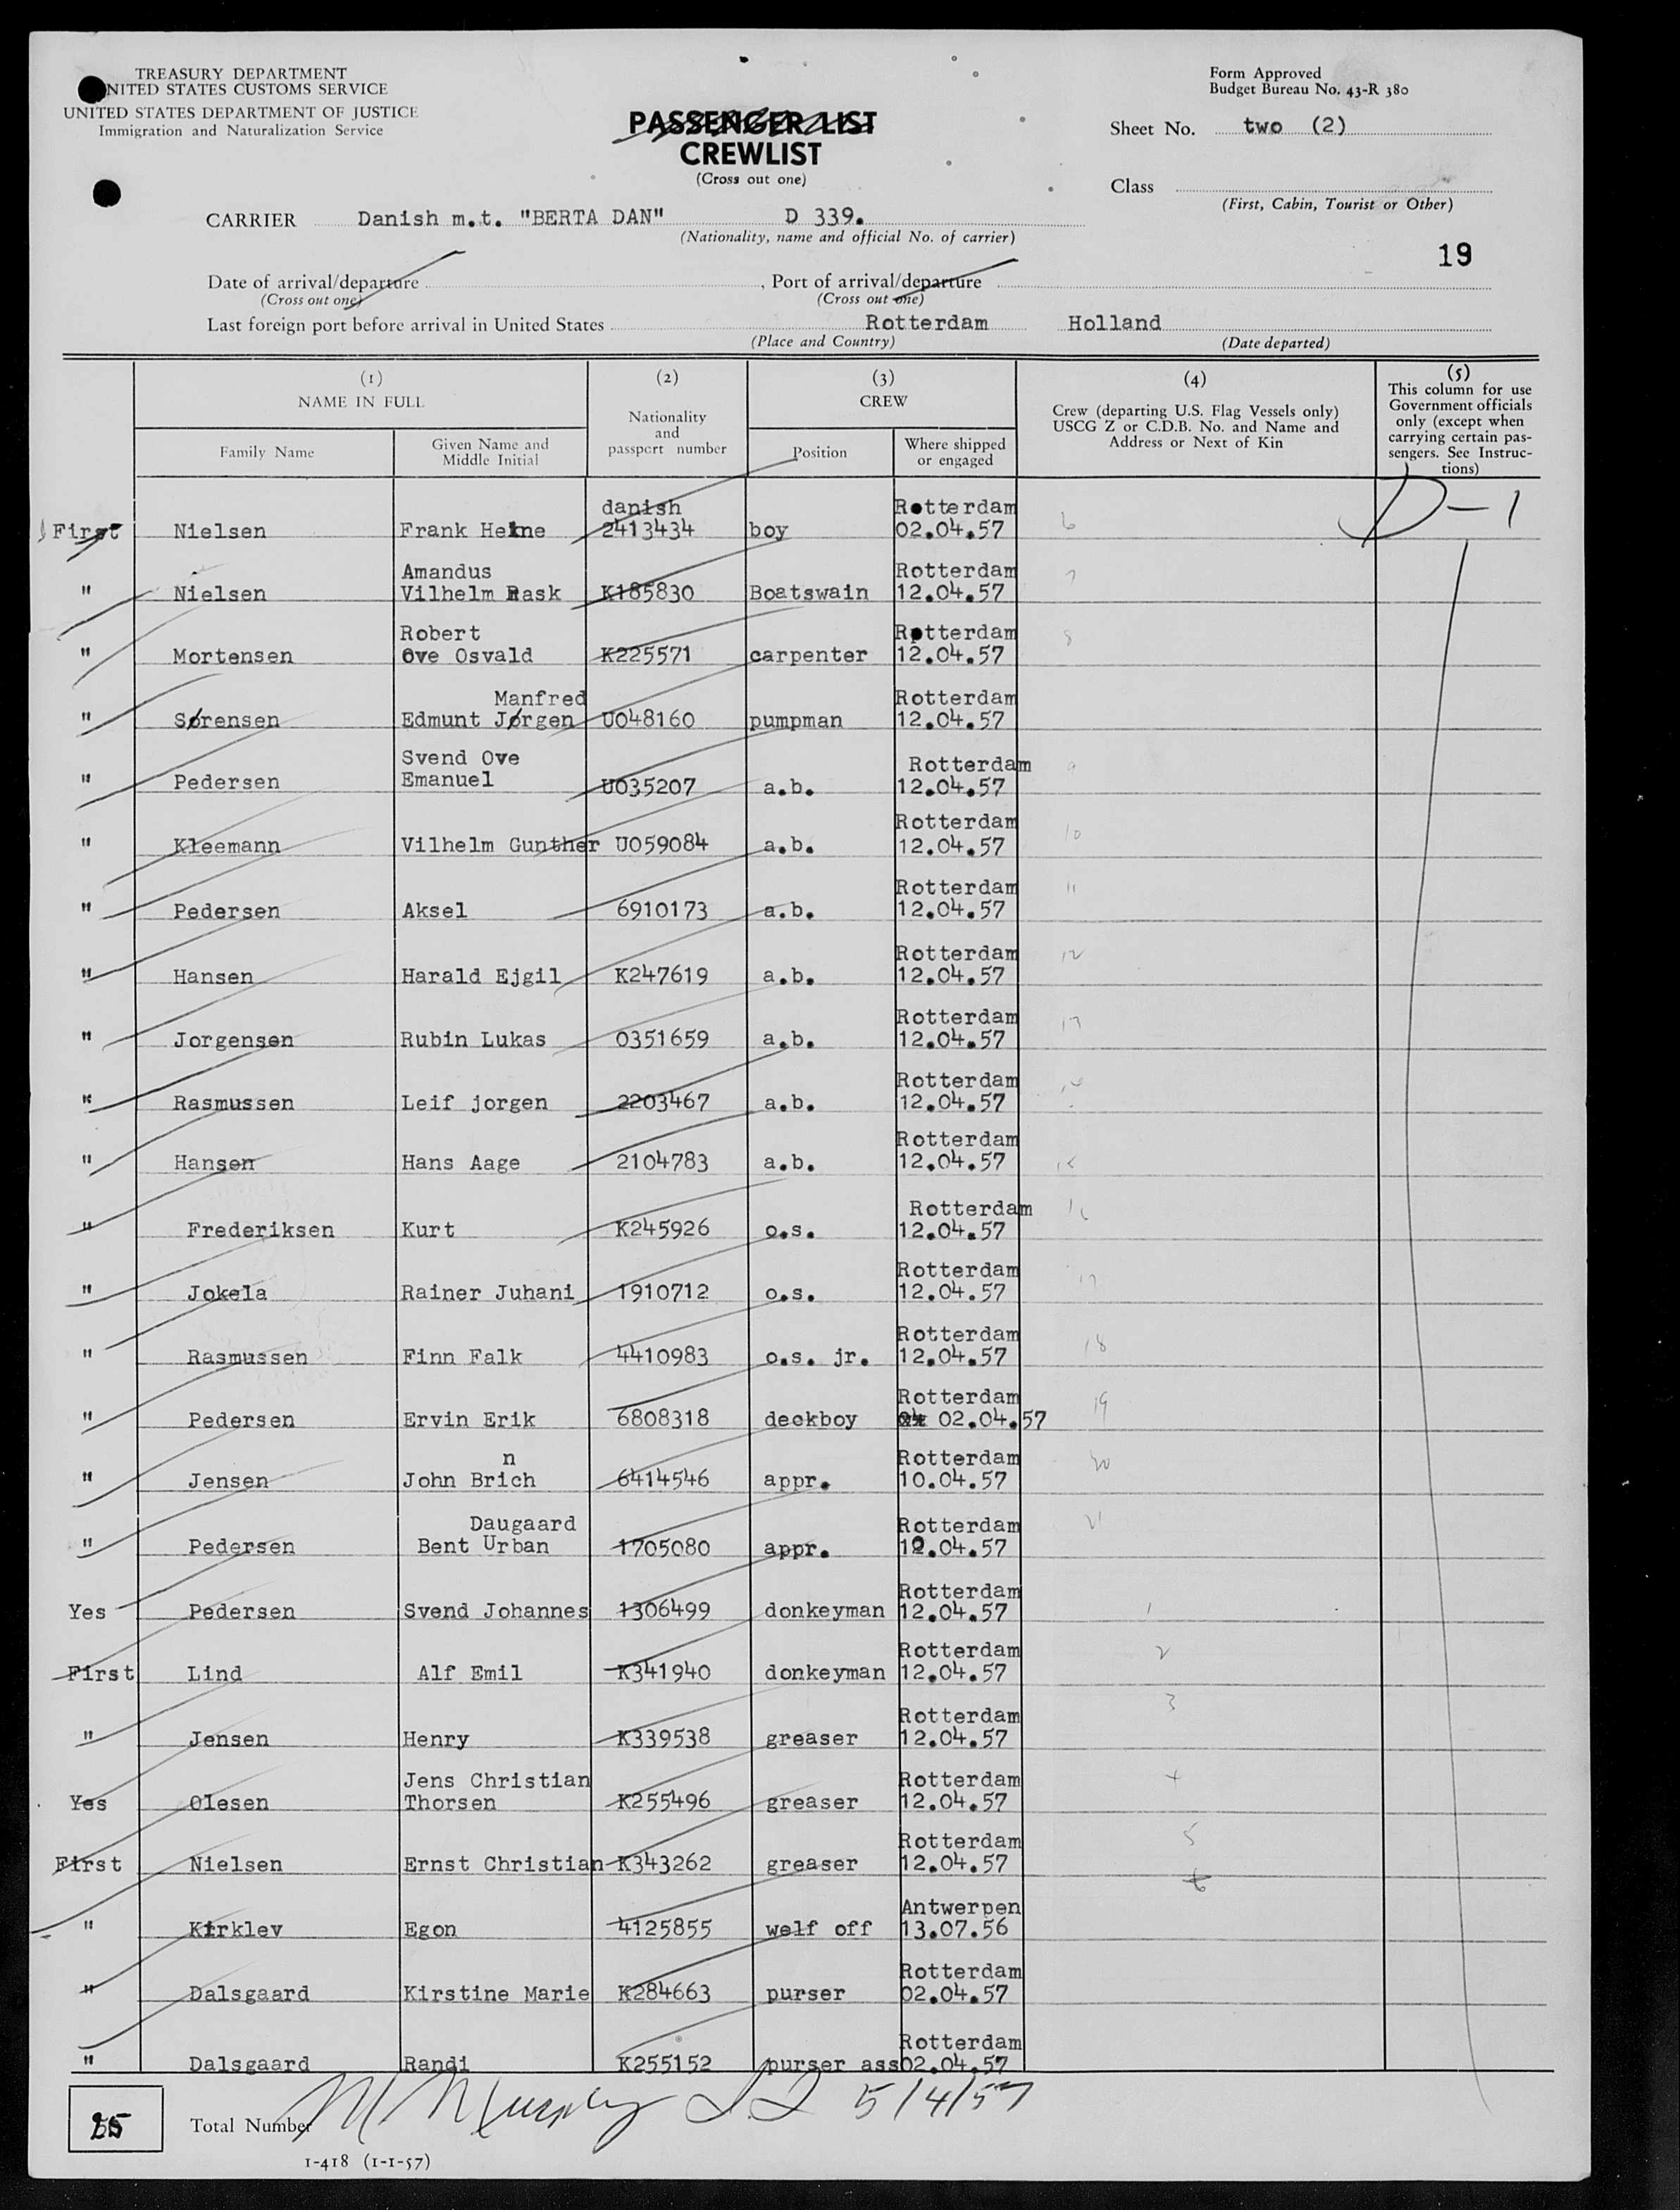 TREASURY DEPARTMENT
UNITED STATES CUSTOMS SERVICE
UNITED STATES DEPARTMENT OF JUSTICE
Immigration and Naturalization Service
Form Approved
Budget Bureau No. 43-R 380
PASSENGER LIST
CREWLIST
(Cross out one)
Sheet No. two (2)
Class
(First, Cabin, Tourist or Other)
CARRIER Danish m.t. "BERTA DAN" D 339.
(Nationality, name and official No. of carrier)
19
Date of arrival/departure , Port of arrival/departure
(Cross out one) (Cross out one)
Last foreign port before arrival in United States Rotterdam Holland
(Place and Country) (Date departed)
(1) (2) (3) (4) (5)
NAME IN FULL
Nationality and passport number
CREW
Crew (departing U.S. Flag Vessels only)
USCG Z or C.D.B. No. and Name and
Address or Next of Kin
This column for use
Government officials
only (except when
carrying certain pas-
sengers. See Instruc-
tions)
Family Name
Given Name and
Middle Initial
Position
Where shipped
or engaged
danish Rotterdam D-1
First Nielsen Frank Heine 2413434 boy 02.04.57 6
Amandus Rotterdam
" Nielsen Vilhelm Rask K185830 Boatswain 12.04.57 7
Robert Rotterdam
" Mortensen Ove Osvald K225571 carpenter 12.04.57 8
Manfred Rotterdam
" Sørensen Edmunt Jørgen U048160 pumpman 12.04.57
Svend Ove Rotterdam
" Pedersen Emanuel U035207 a.b. 12.04.57 9
Rotterdam
" Kleemann Vilhelm Gunther U059084 a.b. 12.04.57 10
Rotterdam
" Pedersen Aksel 6910173 a.b. 12.04.57 11
Rotterdam
" Hansen Harald Ejgil K247619 a.b. 12.04.57 12
Rotterdam
" Jorgensen Rubin Lukas 0351659 a.b. 12.04.57 13
Rotterdam
" Rasmussen Leif jorgen 2203467 a.b. 12.04.57
Rotterdam
" Hansen Hans Aage 2104783 a.b. 12.04.57
Rotterdam
" Frederiksen Kurt K245926 o.s. 12.04.57
Rotterdam
" Jokela Rainer Juhani 1910712 o.s. 12.04.57 17
Rotterdam
" Rasmussen Finn Falk 4410983 o.s. jr. 12.04.57 18
Rotterdam
" Pedersen Ervin Erik 6808318 deckboy 02.04.57 19
n Rotterdam
" Jensen John Brich 6414546 appr. 10.04.57 20
Daugaard Rotterdam
" Pedersen Bent Urban 1705080 appr. 12.04.57 21
Rotterdam
Yes Pedersen Svend Johannes 1306499 donkeyman 12.04.57 1
Rotterdam
First Lind Alf Emil K341940 donkeyman 12.04.57 2
Rotterdam
" Jensen Henry K339538 greaser 12.04.57 3
Jens Christian Rotterdam
Yes Olesen Thorsen K255496 greaser 12.04.57 4
Rotterdam
First Nielsen Ernst Christian K343262 greaser 12.04.57 5
Antwerpen
" Kirklev Egon 4125855 welf off 13.07.56
Rotterdam
" Dalsgaard Kirstine Marie K284663 purser 02.04.57
Rotterdam
" Dalsgaard Randi K255152 purser ass 02.04.57
25 Total Number M Murphy 5/4/57
I-418 (1-1-57)